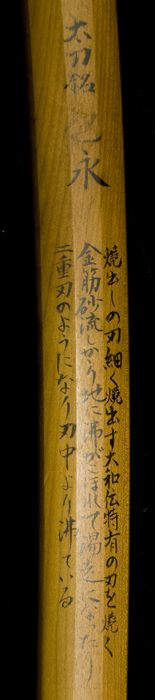 太刀銘 包永
焼出しの刃細く焼出す大和伝特有の刃を焼く
金筋砂流しかゝり地に沸がこぼれて湯走になったり
二重刃のようになり刃中より沸ている